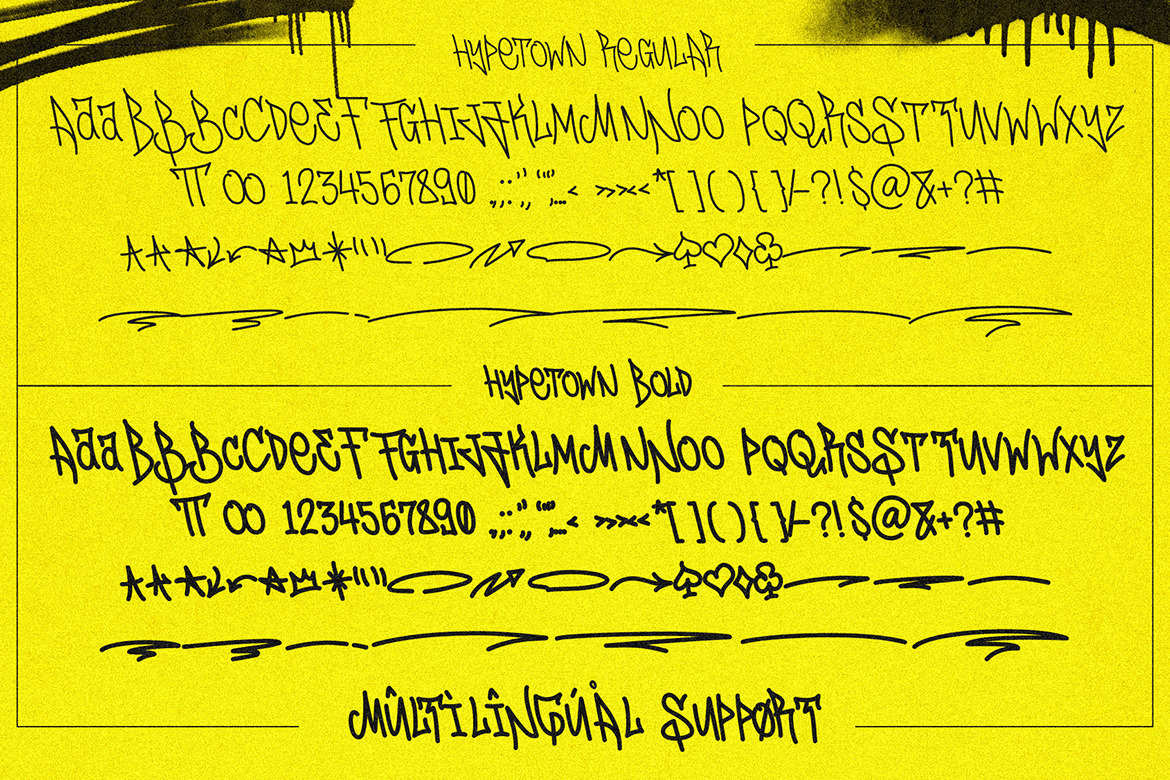 HYPETOWN REGULAR
AaaBBBcCDeEFFGHIJJKLMMNNOO PQQRSSTTUVWWXYZ
TT OO 1234567890 .,;:'',,"",...< »×«*[](){}/-?!$@&+?#
HYPETOWN BOLD
AaaBBBcCDeEFFGHIJJKLMMNNOO PQQRSSTTUVWWXYZ
TT OO 1234567890 .,;:'',,"",...< »×«*[](){}/-?!$@&+?#
MÛLTÌLÎNGÚÅL SUPPØRT